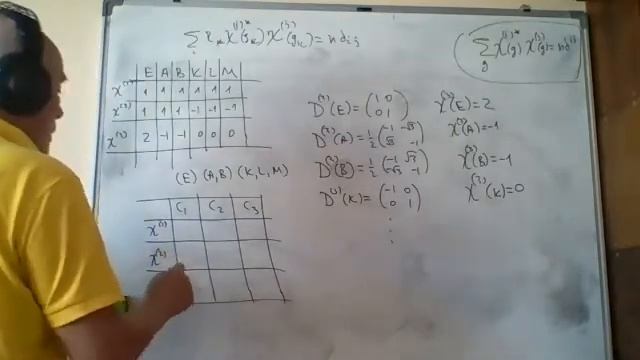 ∑ᵢ rₖ χ⁽ⁱ⁾*(gₖ) χ⁽ʲ⁾(gₖ) = n δᵢⱼ
∑_g χ⁽ⁱ⁾*(g) χ⁽ʲ⁾(g) = n δⁱʲ
E A B K L M
χ⁽¹⁾ 1 1 1 1 1 1
χ⁽²⁾ 1 1 1 -1 -1 -1
χ⁽³⁾ 2 -1 -1 0 0 0
(E) (A, B) (K, L, M)
C₁ C₂ C₃
χ⁽¹⁾
χ⁽²⁾
D⁽³⁾(E) = (1 0
0 1)
D⁽³⁾(A) = 1/2 (-1 -√3
√3 -1)
D⁽³⁾(B) = 1/2 (-1 √3
-√3 -1)
D⁽³⁾(K) = (-1 0
0 1)
⋮
χ⁽³⁾(E) = 2
χ⁽³⁾(A) = -1
χ⁽³⁾(B) = -1
χ⁽³⁾(K) = 0